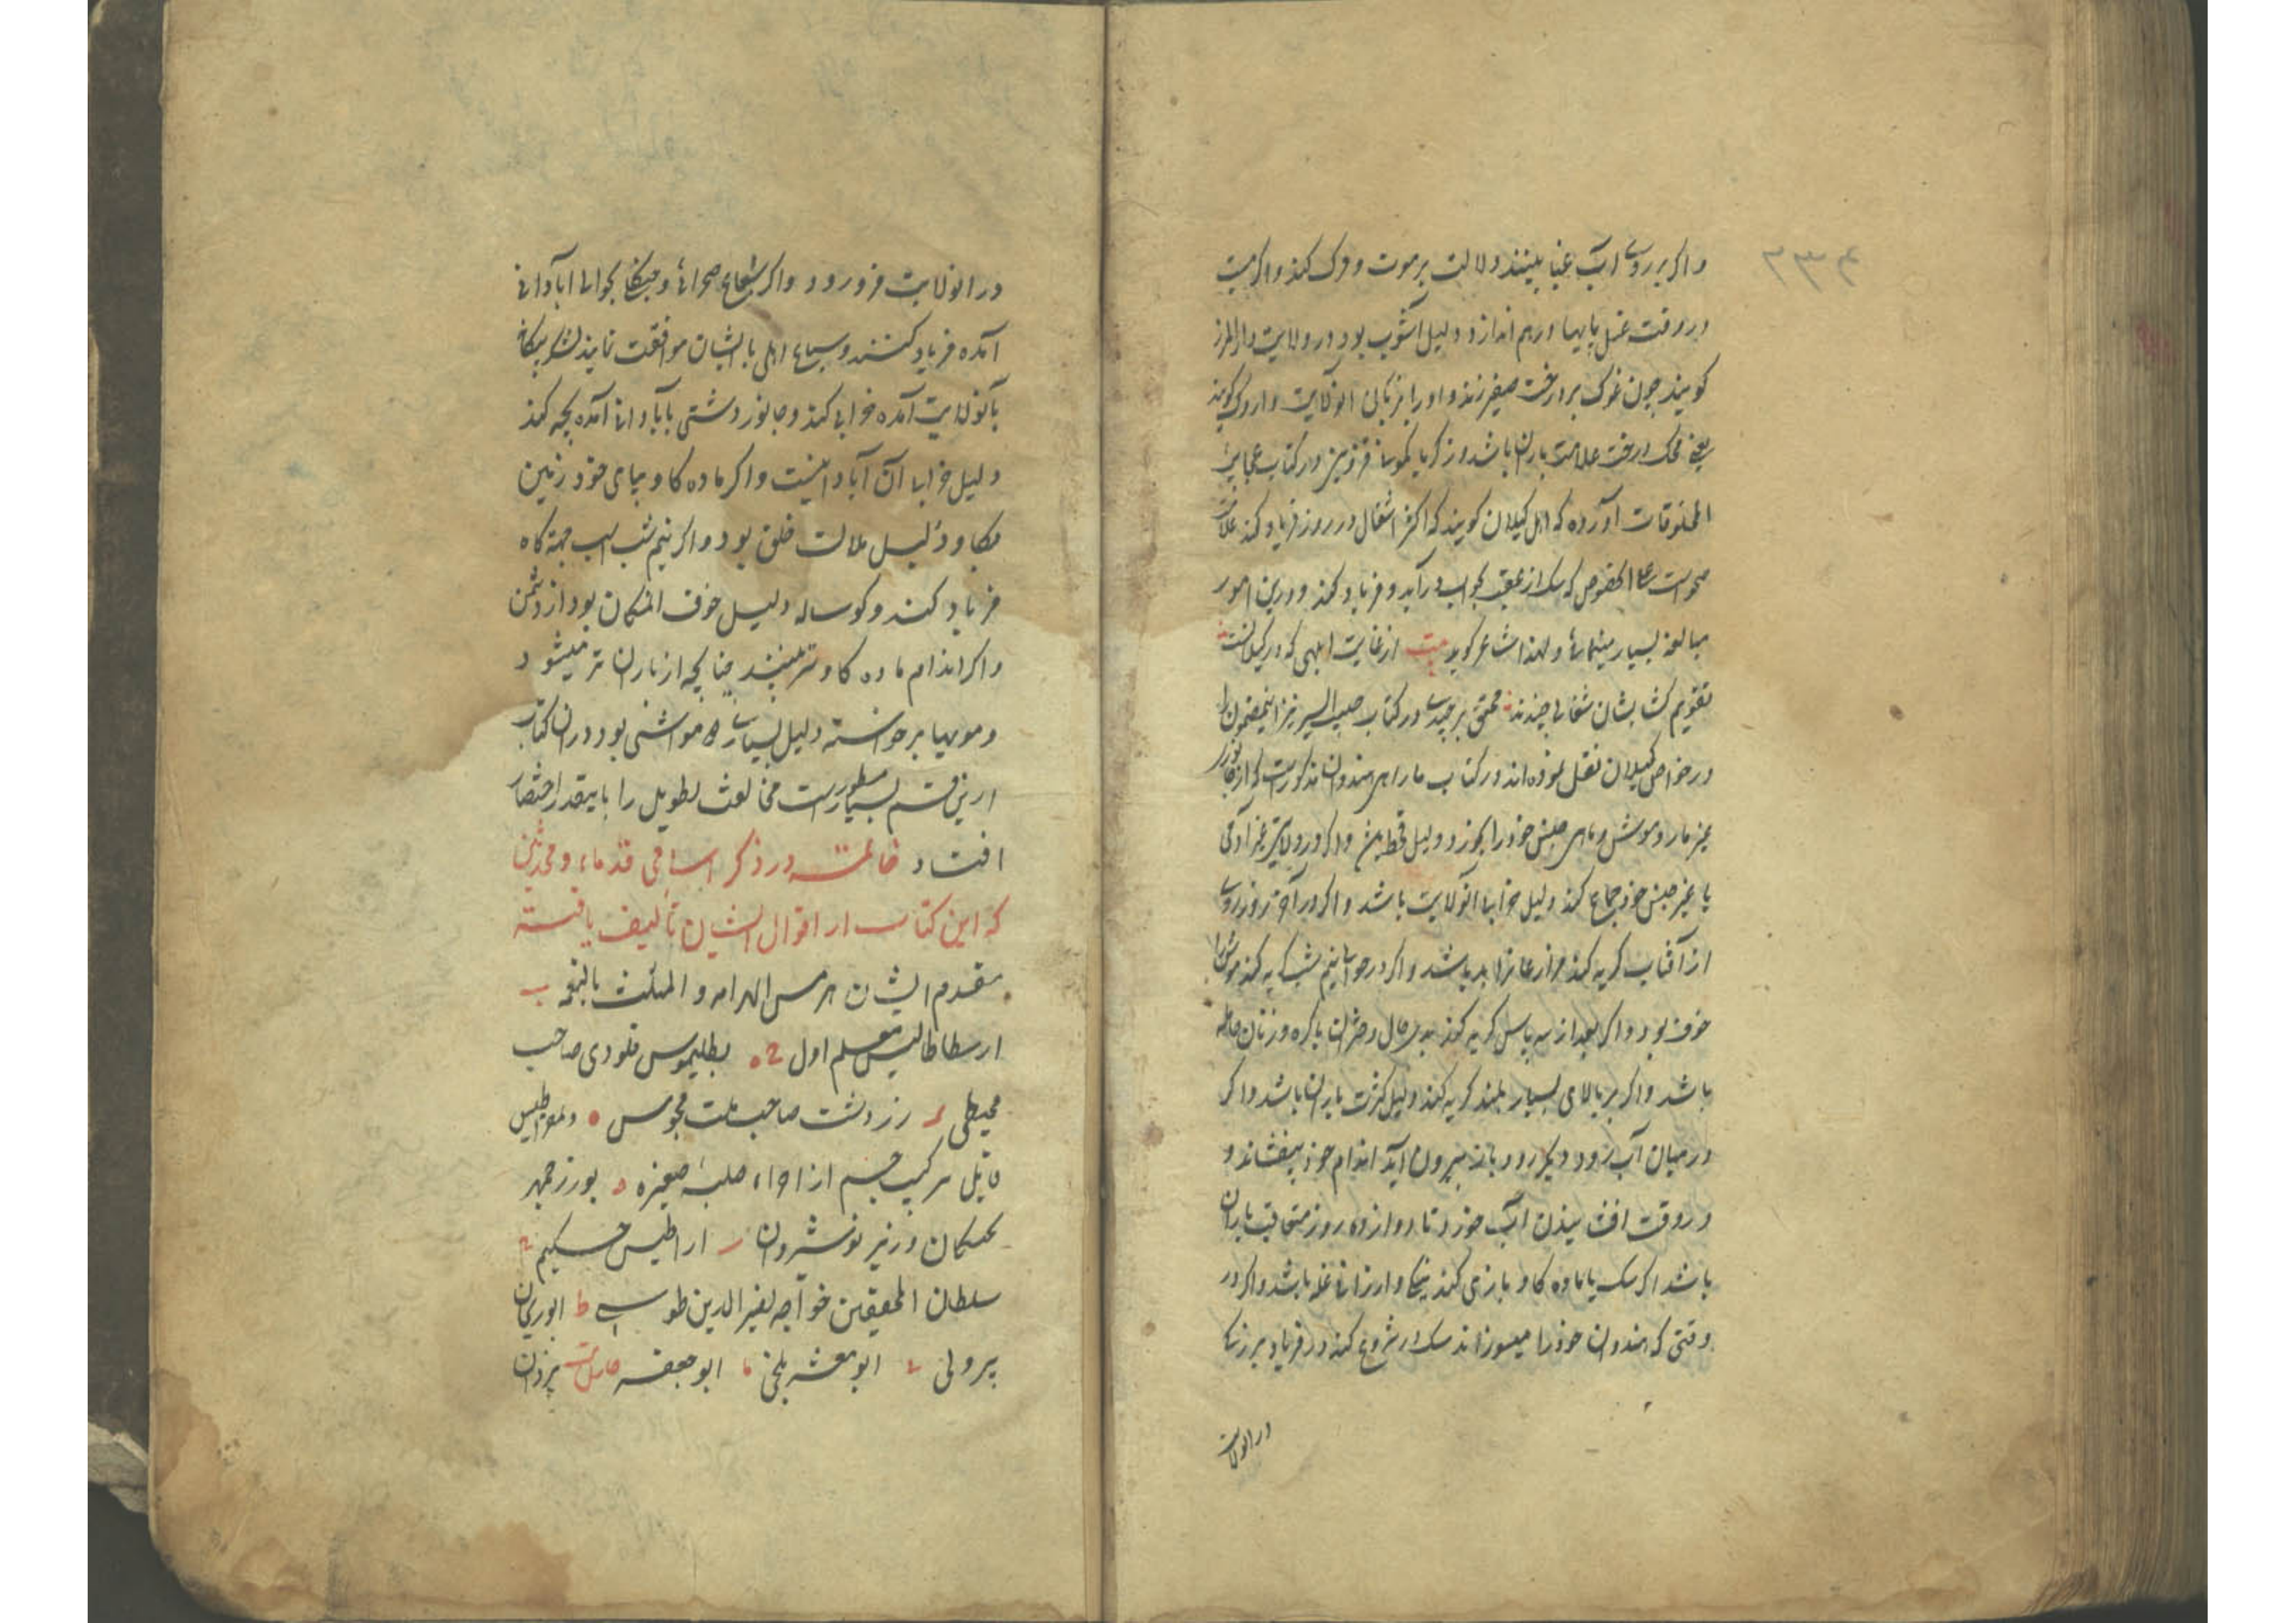 ۲۳۴
و اگر بر روی آب بینند دلالت بر موت و مرک کند و اگر میت
در وقت غسل پایها درهم اندازد دلیل آشوب بود در ولایت دار المرز
کویند چون غوک بر درخت صفیر زند و او را بزبان انولایت داروک کویند
یعنی درخت علامت باران باشد و زکریا قزوینی در کتاب عجایب
المخلوقات آورده که اهل کیلان کویند که اکثر اشغال در روز فریاد کند علامت
صحوست علی الخصوص که سک از عقب بجواب درآید و فریاد کند و درین امور
مبالغه بسیار مینمایند و لهذا شاعر کوید بیت از غایت ابلهی که در کیلانست
تقویم کشانشان شغالی چندند محقق در کتاب حبیب السیر نیز اینمضمون را
در خواص کیلان نقل نموده اند در کتاب هندوان مذکورست که اگر جانور
غیر مار و موش و ماهی جنس خود را بخورد دلیل قحط و اگر در ولایتی غیر آدمی
با غیر جنس خود جماع کند دلیل خرابی انولایت باشد و اگر در آخر روز روی
از آفتاب کریه کند باشد و اگر در نیم شب کریه کند
خوف بود و اگر بعد از سه پاس کریه کند و دختران باکره و زنان حامله
باشد و اگر بر بالای بسیار بلند کریه کند دلیل کثرت باران باشد و اگر
در میان آب رود و باز بیرون آید اندام خود بیفشاند و
در وقت افشانیدن آب خورد تا دوازده روز متعاقب باران
باشد اگر سک با ماده کاو بازی کند و ارزانی غله باشد و اگر در
وقتی که هندوان خود را میسوزانند سک شروع کند در فریاد
در انولایت
در انولایت فرو رود و اگر سباع صحرائی و جنکلی بحوالی ابادانی
آمده فریاد کنند و سباع اهلی با ایشان موافقت نمایند لشکر بیکانه
بانولایت آمده خرابی کند و جانور دشتی بابادانی آمده بچه کند
دلیل خرابی آن آبادانیست و اگر ماده کاو بپای خود زمین
بکاود دلیل ملالت خلق بود و اگر نیم شب بی جهة کاه
فریاد کند و کوساله دلیل خوف انمکان بود از دشمن
و اگر اندام ماده کاو تر بینند چنانچه از باران تر میشود
و مویها برخواسته دلیل بسیاری مواشی بود در ان کتاب
ازین قسم بسیار مسطورست مخافت تطویل را باینقدر اختصار
افتاد خاتمه در ذکر اسامی قدماء و محدثین
که این کتاب از اقوال ایشان تألیف یافته
مقدم ایشان هرمس الهرامه و المثلث بالنعمه ب
ارسطاطالیس معلم اول ح بطلیموس قلودی صاحب
مجیطی د زردشت صاحب ملت مجوس ه دیمقراطیس
قایل ترکیب جسم از اجزاء صلبه صغیره و بوزرجمهر
بختکان وزیر نوشیروان ز اراطیس حکیم ح
سلطان المحققین خواجه نصیر الدین طوسی ط ابوریحان
بیرونی ی ابو معشر بلخی یا ابو جعفر